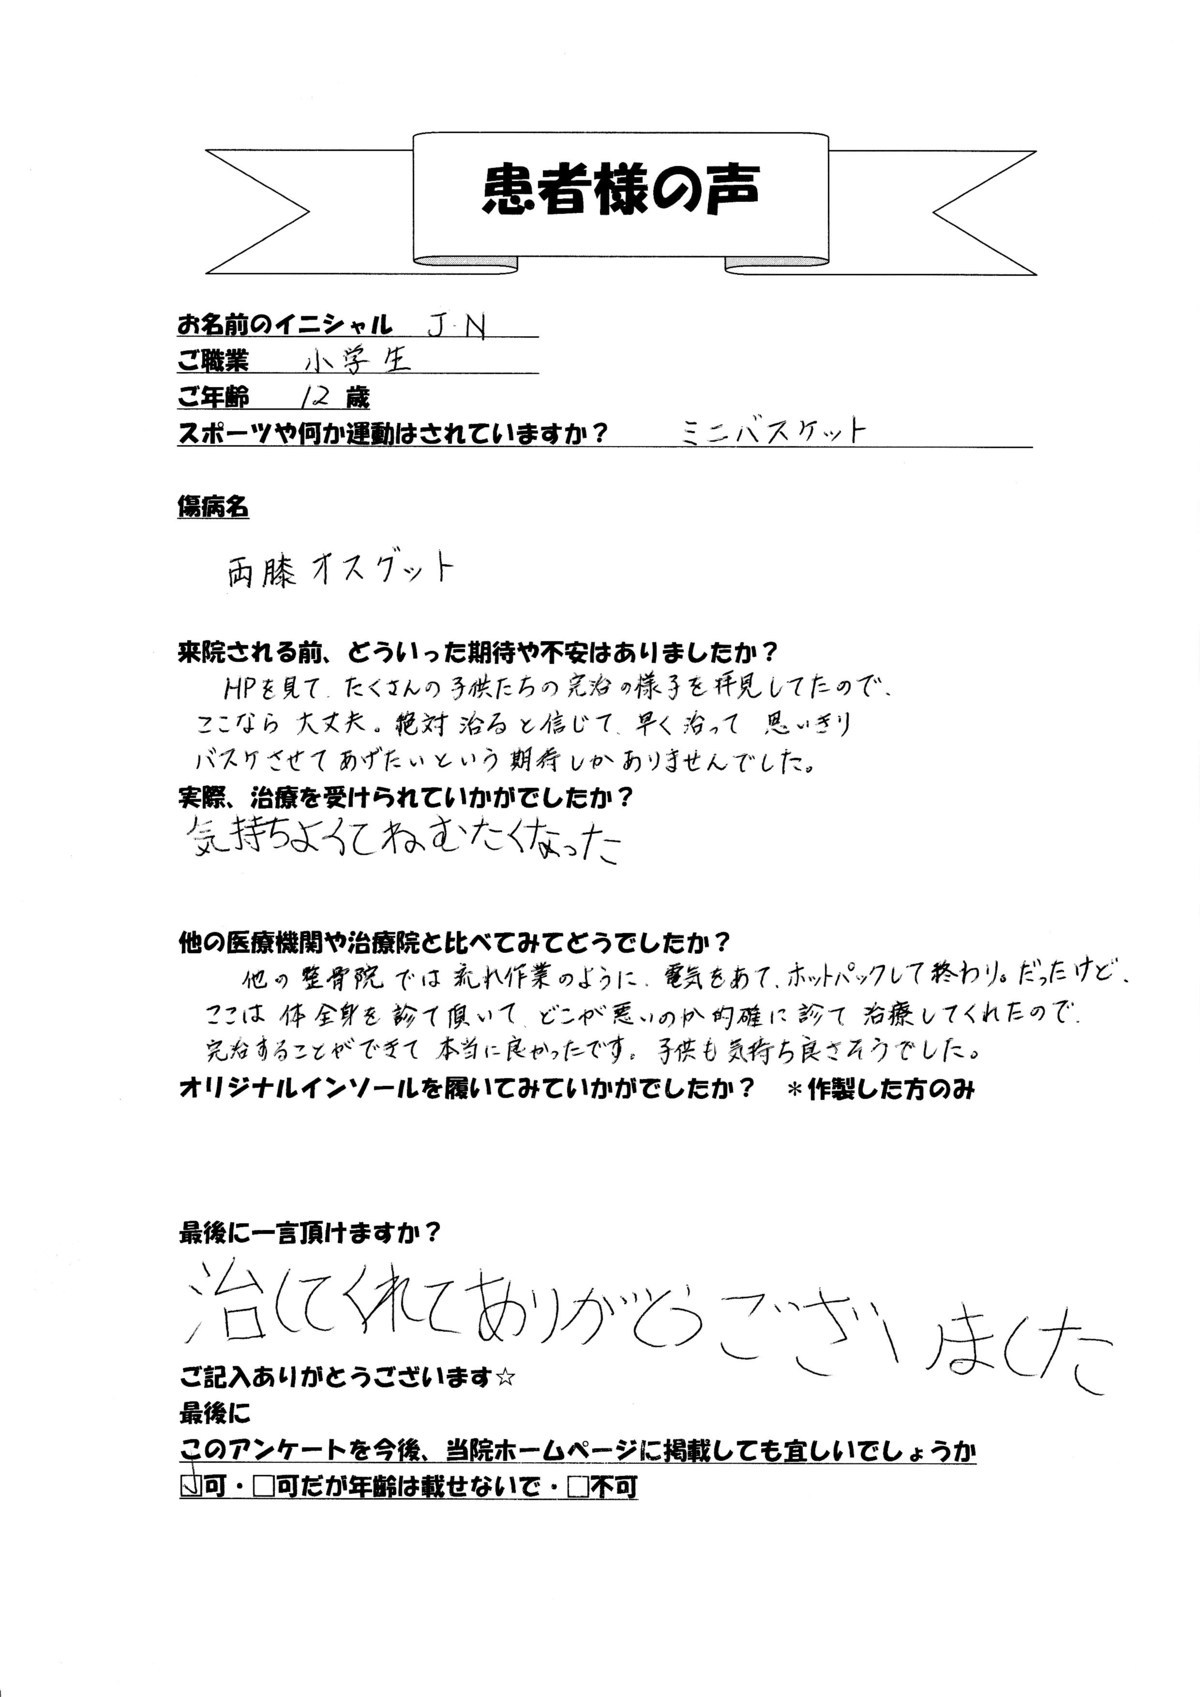 患者様の声
お名前のイニシャル J.N
ご職業 小学生
ご年齢 12 歳
スポーツや何か運動はされていますか? ミニバスケット
傷病名
両膝オスグット
来院される前、どういった期待や不安はありましたか?
HPを見て、たくさんの子供たちの完治の様子を拝見してたので、
ここなら大丈夫。絶対治ると信じて、早く治って思いきり
バスケさせてあげたいという期待しかありませんでした。
実際、治療を受けられていかがでしたか?
気持ちよくてねむたくなった
他の医療機関や治療院と比べてみてどうでしたか?
他の整骨院では流れ作業のように、電気をあて、ホットパックして終わり。だったけど、
ここは体全身を診て頂いて、どこが悪いのか的確に診て治療してくれたので、
完治することができて本当に良かったです。子供も気持ち良さそうでした。
オリジナルインソールを履いてみていかがでしたか? *作製した方のみ
最後に一言頂けますか?
治してくれてありがとうございました
ご記入ありがとうございます☆
最後に
このアンケートを今後、当院ホームページに掲載しても宜しいでしょうか
☑可・□可だが年齢は載せないで・□不可